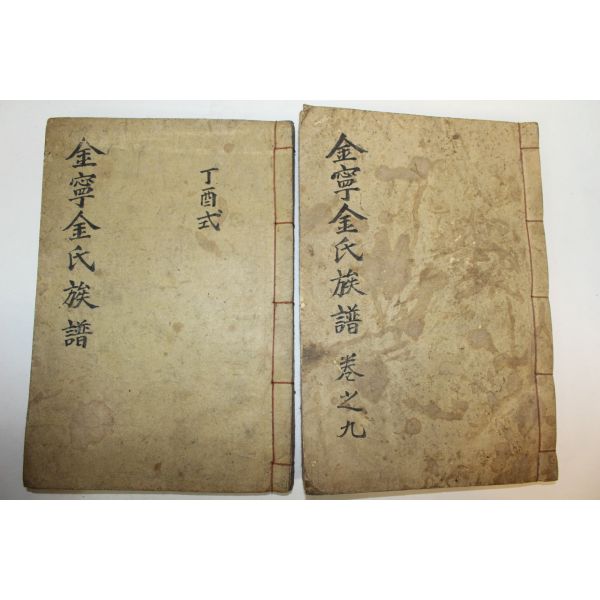 金寧金氏族譜
丁酉式
金寧金氏族譜 卷之九